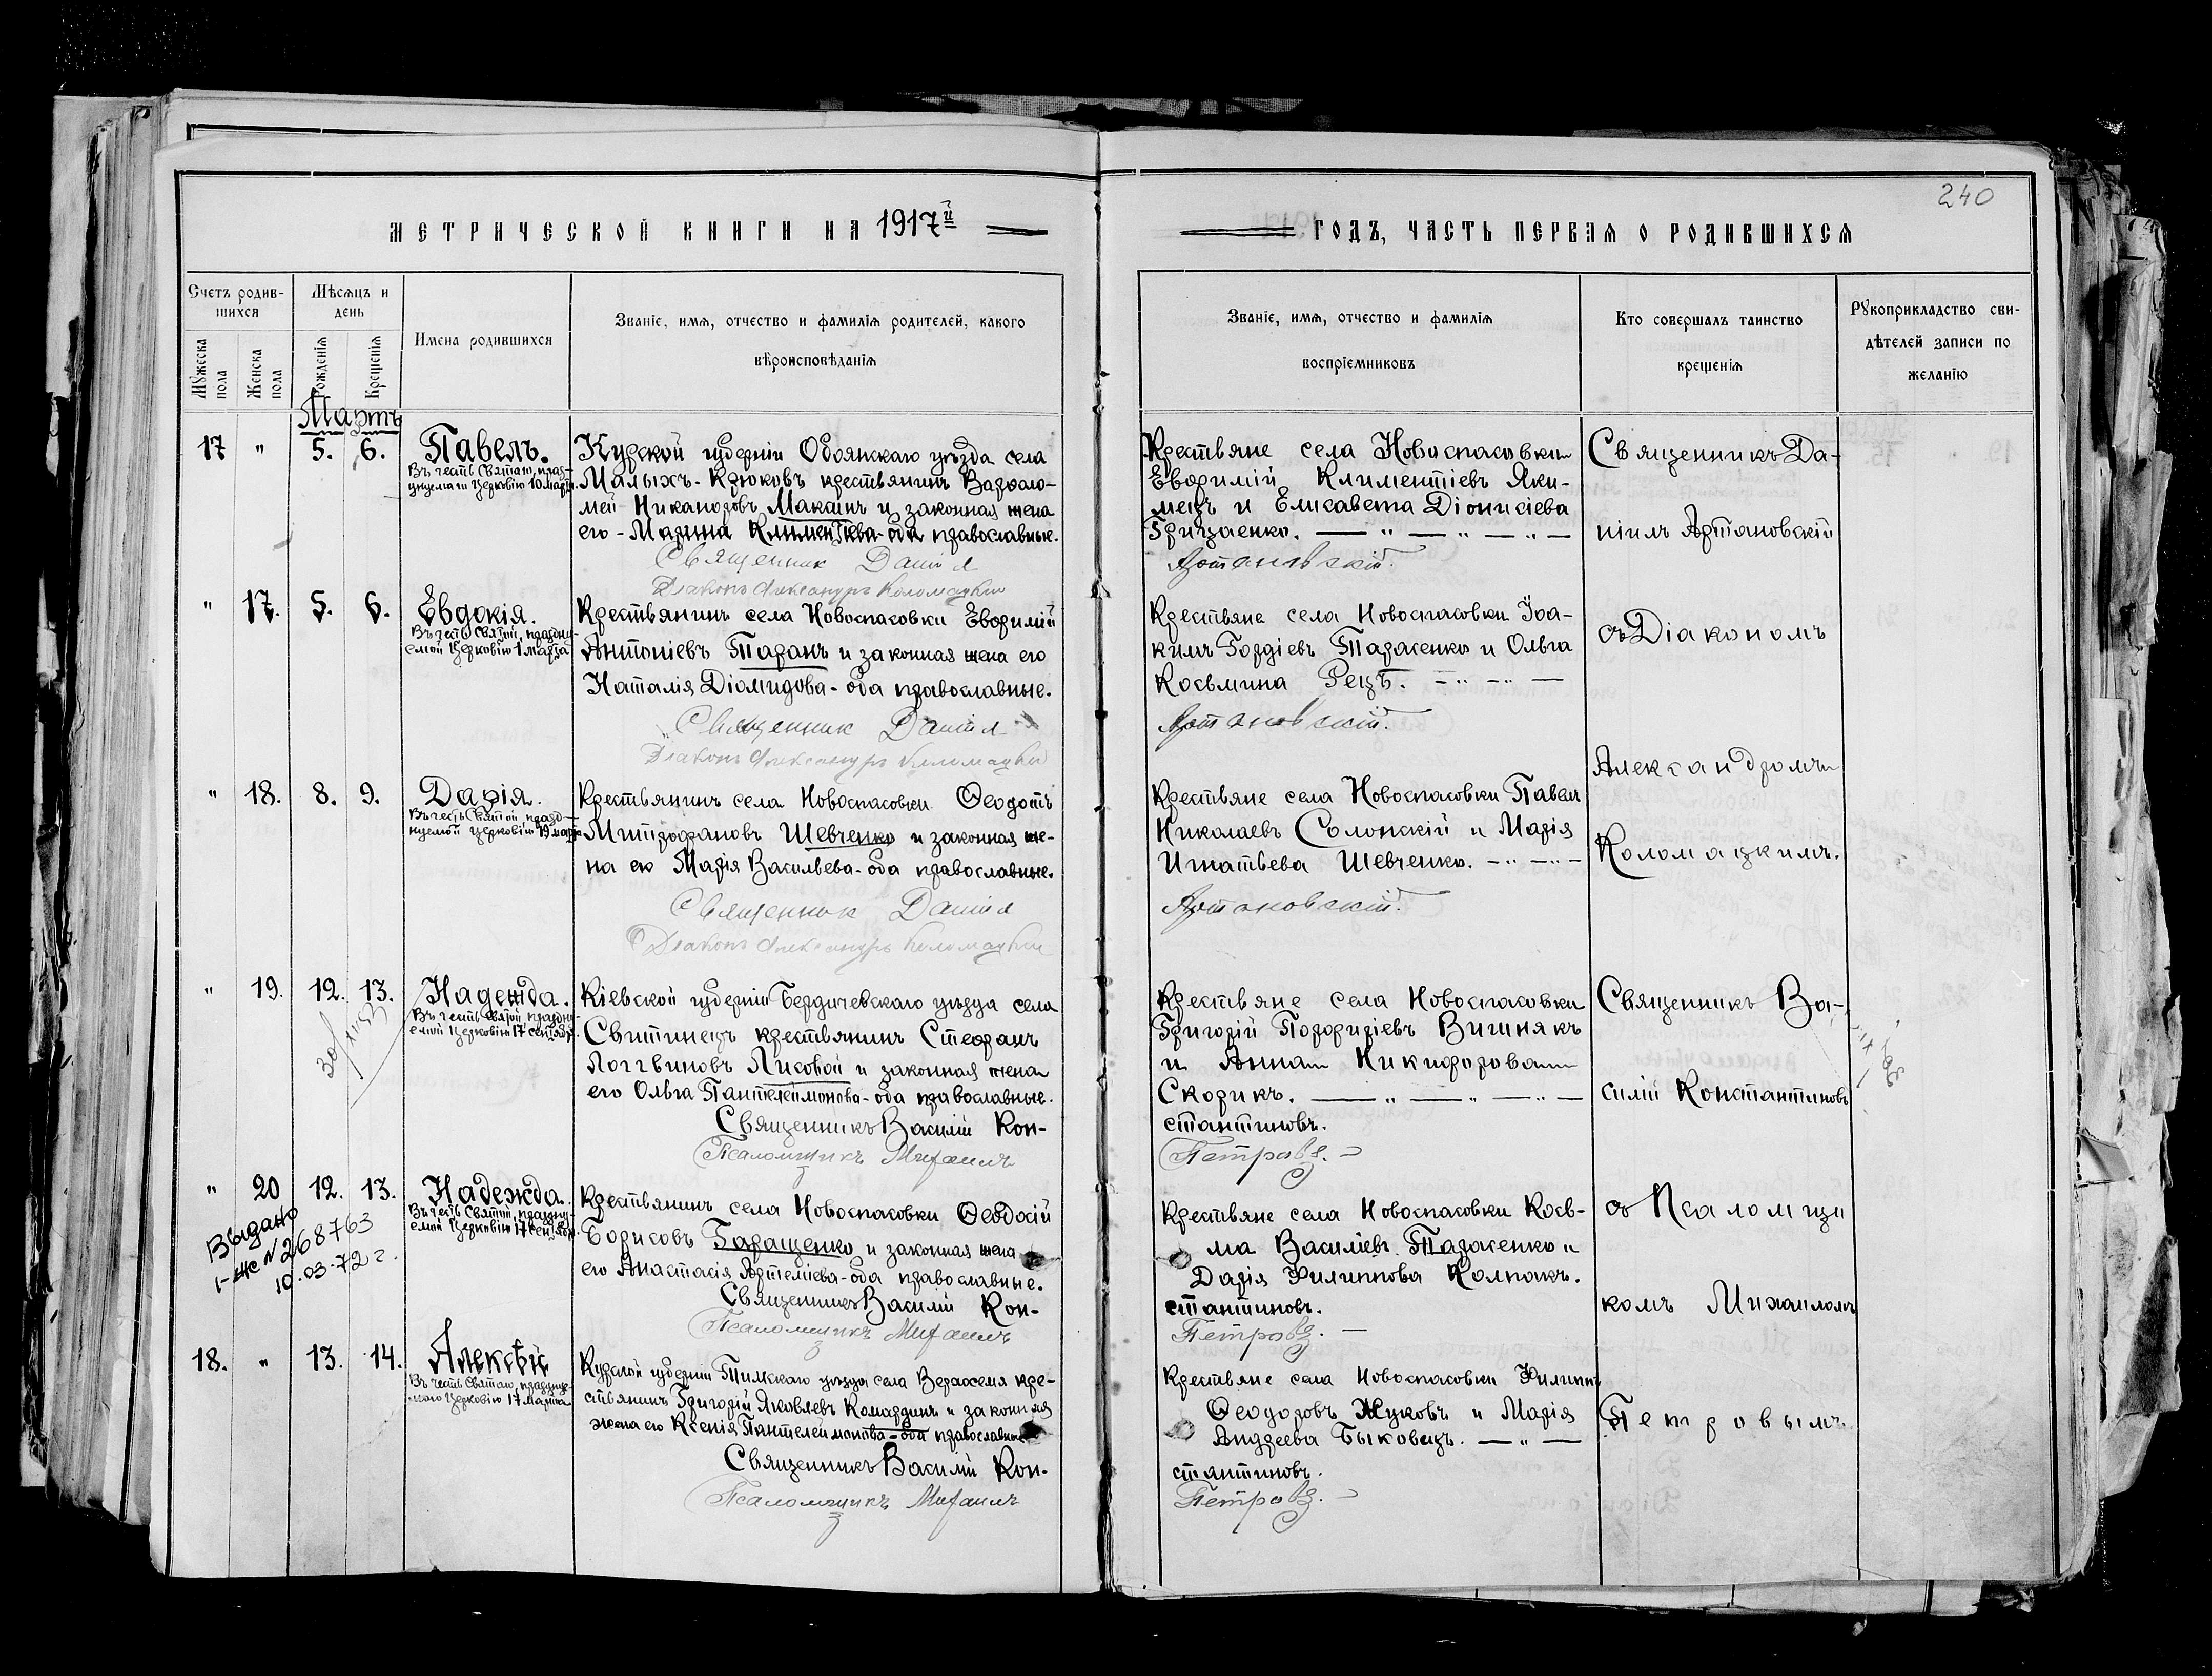 240
МЕТРИЧЕСКОЙ КНИГИ НА 1917й
ГОДЪ, ЧАСТЬ ПЕРВАЯ О РОДИВШИХСЯ
Счетъ родив-
шихся
Мѣсяцъ и
день
Имена родившихся
Званіе, имя, отчество и фамилія родителей, какого
вѣроисповѣданія
Мужеска пола
Женска пола
Рожденія
Крещенія
Званіе, имя, отчество и фамилія
воспріемниковъ
Кто совершалъ таинство
крещенія
Рукоприкладство сви-
дѣтелей записи по
желанію
Мартъ
17 " 5. 6.
Павелъ.
Въ честь Святаго, празд-
нуемаго Церковію 10 марта.
Курской губерніи Обоянскаго уѣзда села
Малыхъ-Крюковъ крестьянинъ Варѳоло-
мей Никаноровъ Максинъ и законная жена
его - Марина Климентіева - оба православные.
Священник Даніил
Діаконъ Александръ Коломацкій
Крестьяне села Новоспасовки
Евфимій Климентіевъ Яки-
мецъ и Елисавета Діонисіева
Гриценко. — " — " — " —
Артановскій.
" 17. 5. 6.
Евдокія.
Въ честь Святой, праздну-
емой Церковію 1 марта
Крестьянинъ села Новоспасовки Евфимій
Антоніевъ Таранъ и законная жена его
Наталія Діомидова - оба православные.
Священник Даніил
Діаконъ Александръ Коломацкій
Крестьяне села Новоспасовки Іоа-
кимъ Гордіевъ Тарасенко и Ольга
Косьмина Рецъ. - " - " —
Артановскій.
" 18. 8. 9.
Дарія.
Въ честь Святой, празд-
нуемой Церковію 19 марта
Крестьянинъ села Новоспасовки Ѳеодотъ
Митрофановъ Шевченко и законная же-
на его Марія Васильева - оба православные.
Священник Даніил
Діаконъ Александръ Коломацкій
Крестьяне села Новоспасовки Павел
Николаевъ Солонскій и Марія
Игнатьева Шевченко. - " - " -
Артановскій.
Священникъ Да-
ніилъ Артановскій
съ Діакономъ
Александромъ
Коломацкимъ.
" 19. 12. 13.
30/XII 53
Надежда.
Въ честь Святой, праздну-
емой Церковію 17 сентября
Кіевской губерніи Бердичевскаго уѣзда села
Свитинецъ крестьянинъ Стефанъ
Логгвиновъ Лисовой и законная жена
его Ольга Пантелеимонова - оба православные.
Священникъ Василій Кон-
Псаломщикъ Михаилъ
Крестьяне села Новоспасовки
Григорій Порфиріевъ Вишнякъ
и Анна Никифорова
Скорикъ. — " — " — " —
стантиновъ.
Петровъ. —
" 20 12. 13.
Выдано
I-ЖС № 268763
10.03.72 г.
Надежда.
Въ честь Святой, праздну-
емой Церковію 17 сентября.
Крестьянинъ села Новоспасовки Ѳеодосій
Борисовъ Геращенко и законная жена
его Анастасія Артеміева - оба православные.
Священникъ Василій Кон-
Псаломщикъ Михаилъ
Крестьяне села Новоспасовки Косъ-
ма Василіевъ Тарасенко и
Дарія Филиппова Колпакъ.
стантиновъ.
Петровъ. —
18. " 13. 14.
Алексѣй
Въ честь Святаго, праздуе-
маго Церковію 17 марта
Курской губерніи Тимскаго уѣзда села Верхоселя кре-
стьянинъ Григорій Яковлевъ Комардинъ и законная
жена его Ксенія Пантелеимонова - оба православные
Священникъ Василій Кон-
Псаломщикъ Михаилъ
Крестьяне села Новоспасовки Филиппъ
Ѳеодоровъ Жуковъ и Марія
Андреева Быковецъ. — " —
стантиновъ.
Петровъ. —
Священникъ Ва-
силій Константиновъ
съ Псаломщи
комъ Михаиломъ
Петровымъ.